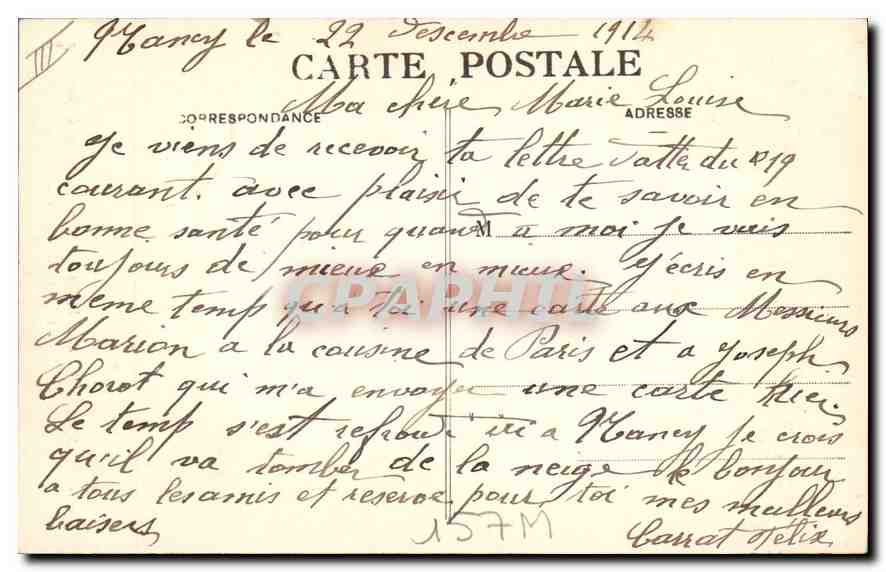 III
Nancy le 22 Descembre 1914
CARTE POSTALE
Ma chère Marie Louise
CORRESPONDANCE
ADRESSE
Je viens de recevoir ta lettre datter du 19
courant. avec plaisir de te savoir en
bonne santé pour quand a moi je vais
M
toujours de mieux en mieux. J'écris en
meme temp qu'a toi une carte aux Messieurs
CPAPHIL
Marion a la cousine de Paris et a Joseph
Chorot qui m'a envoyer une carte hier.
Le temp s'est refroidi ici a Nancy je crois
qu'il va tomber de la neige le bonjour
a tous les amis et reserve pour toi mes meilleurs
baisers
157M
Carrat Félix